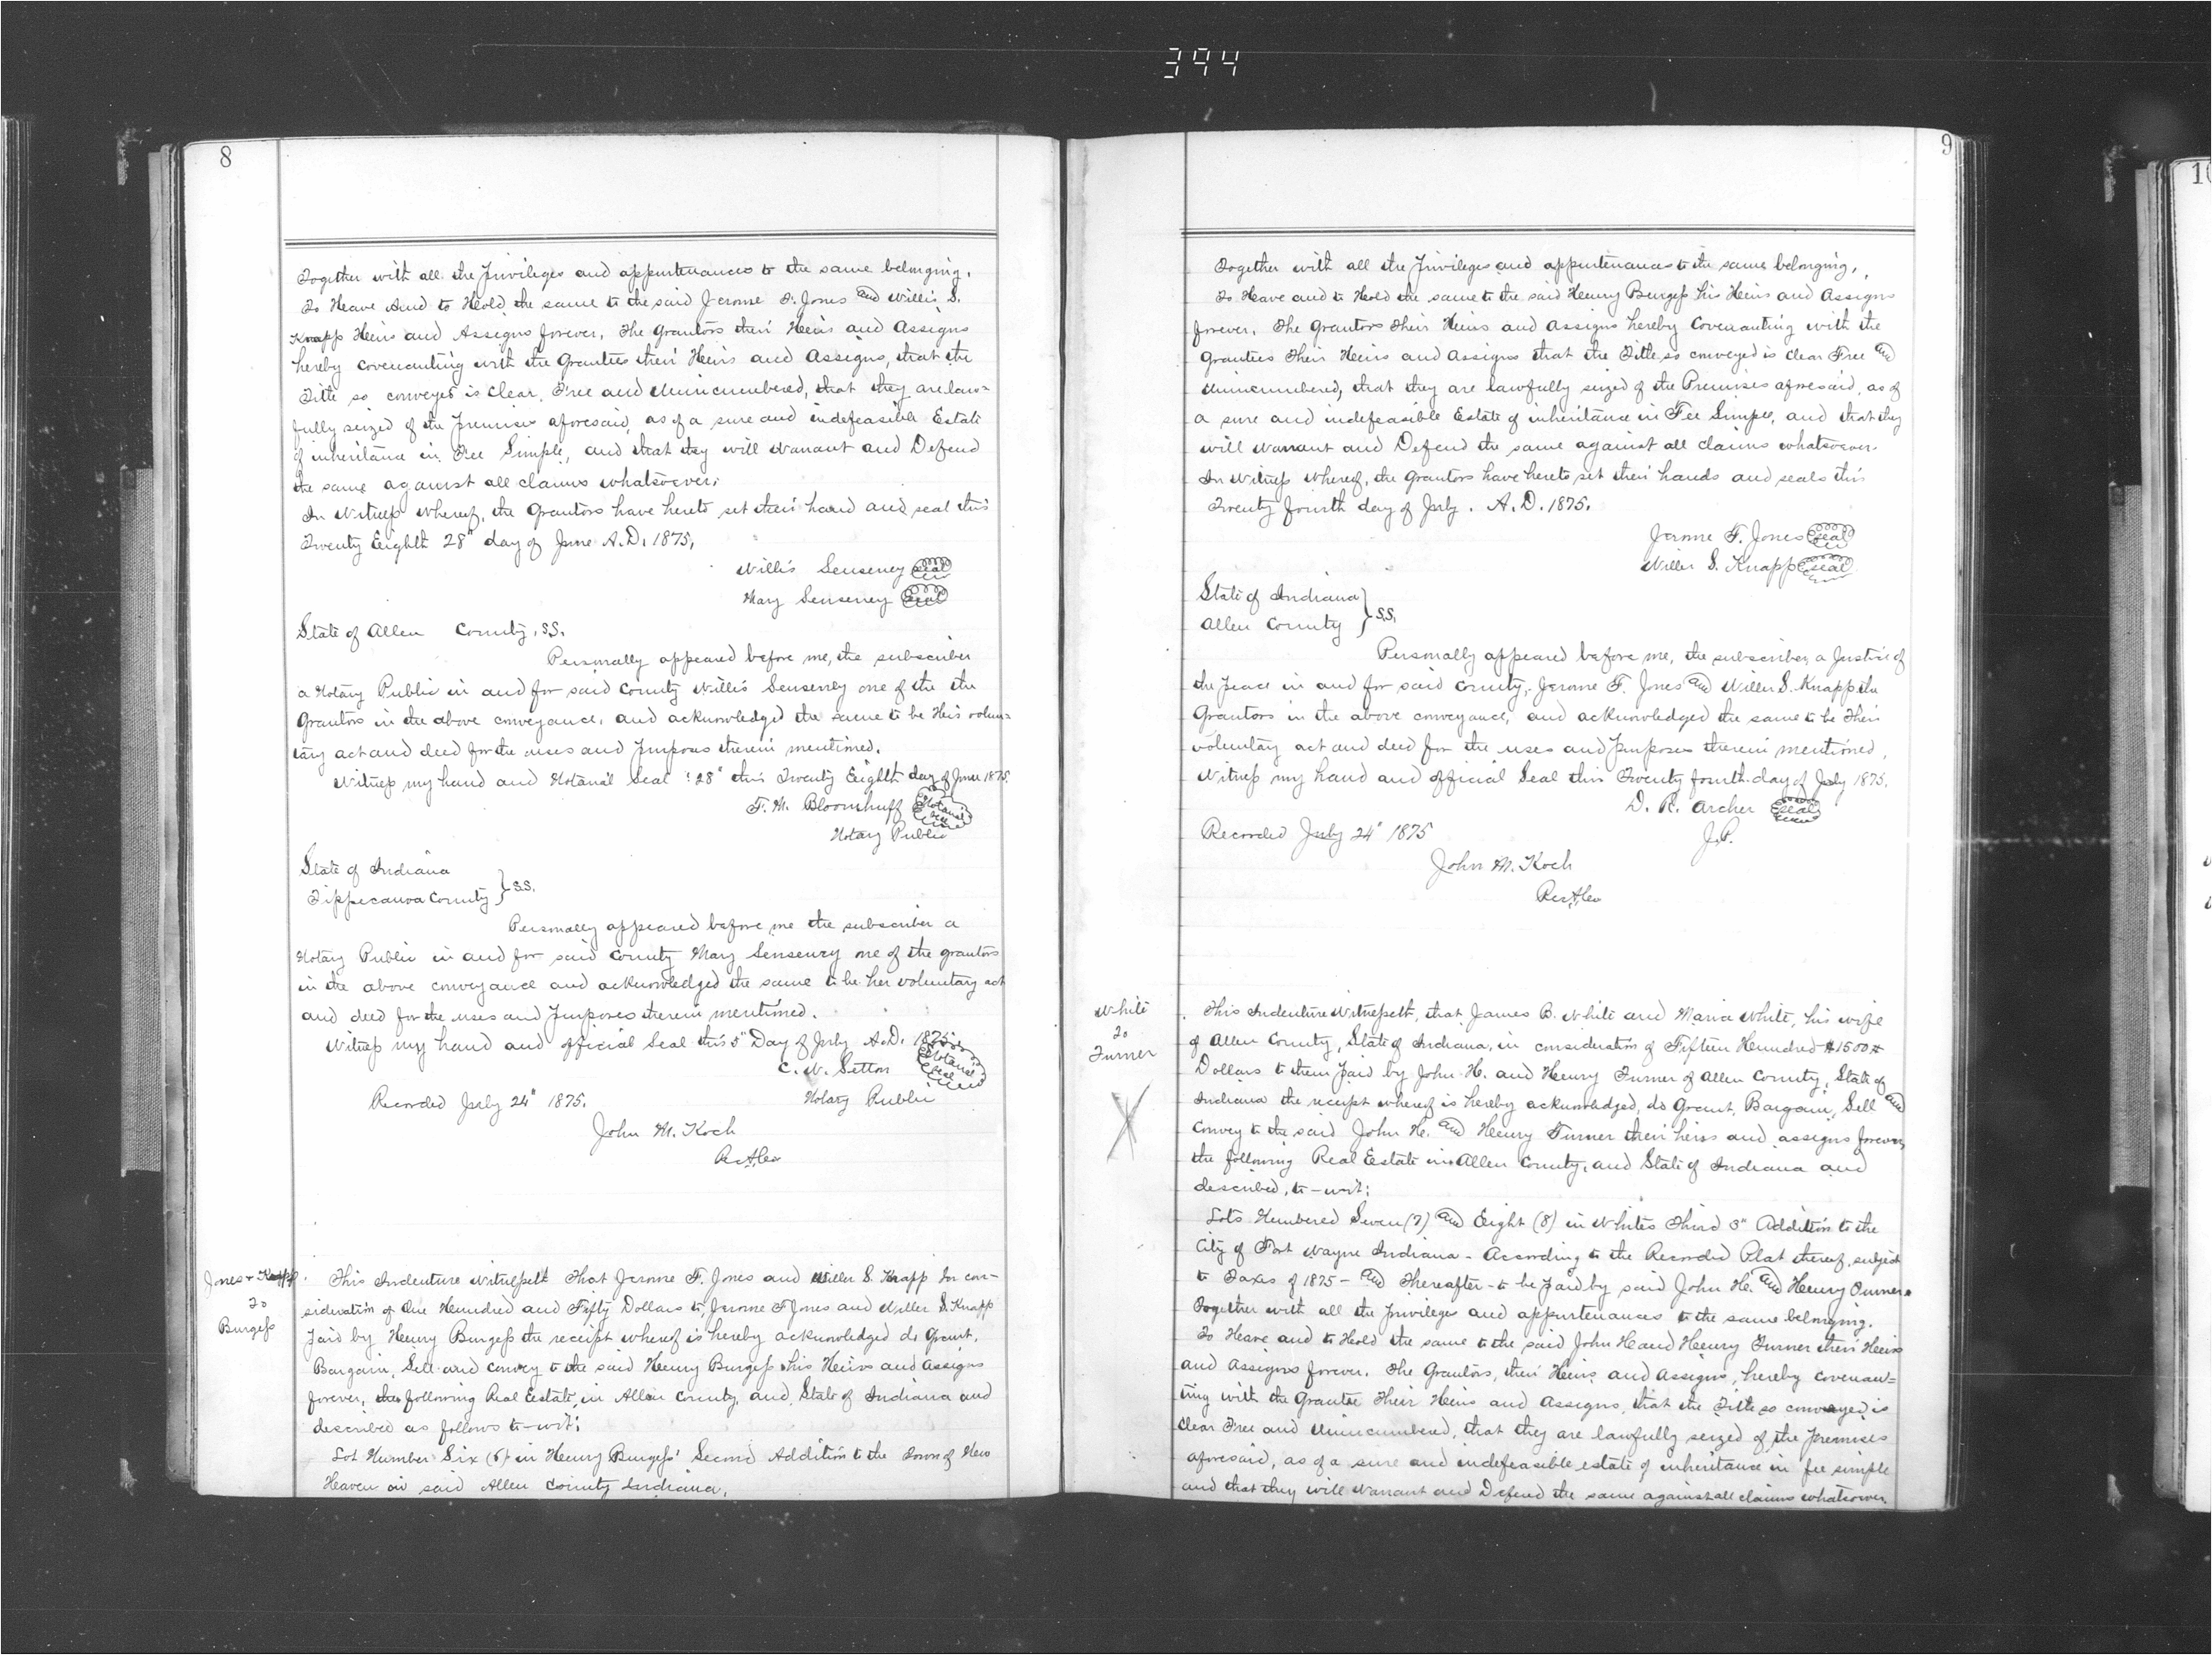 394
8
Together with all the Privileges and appurtenances to the same belonging.
To Have And to Hold the same to the said Jerome F. Jones and Willis S.
Knapp Heirs and Assigns forever, The Grantors their Heirs and Assigns
hereby covenanting with the Grantees their Heirs and Assigns, that the
Title so conveyed is Clear, Free and Unincumbered, that they are law=
fully seized of the Premises aforesaid, as of a sure and indefeasible Estate
of inheritance in Fee Simple, and that they will Warrant and Defend
the same against all claims whatsoever.
In Witness Whereof, the Grantors have hereto set their hand and seal this
Twenty Eighth 28" day of June A.D. 1875,
Willis Senseney Seal
Mary Senseney Seal
State of Allen County, S.S.
Personally appeared before me, the subscriber
a Notary Public in and for said County Willis Senseney one of the the
Grantors in the above conveyance, and acknowledged the same to be His volun=
tary act and deed for the uses and Purposes therein mentioned.
Witness my hand and Notarial Seal "28" this Twenty Eighth day of June 1875.
F. M. Bloomhuff Notarial Seal
Notary Public
State of Indiana
Tippecanoe County } S.S.
Personally appeared before me the subscriber a
Notary Public in and for said County Mary Senseney one of the grantors
in the above conveyance and acknowledged the same to be her voluntary act
and deed for the uses and Purposes therein mentioned.
Witness my hand and official Seal this 5" Day of July A.D. 1875.
C. W. Sitton Notarial Seal
Recorded July 24" 1875. Notary Public
John M. Koch
Jones & Knapp
to
Burgess
This Indenture Witnesseth That Jerome F. Jones and Willer S. Knapp In con-
sideration of One Hundred and Fifty Dollars to Jerome F Jones and Willer S. Knapp
Paid by Henry Burgess the receipt whereof is hereby acknowledged do Grant,
Bargain, Sell and Convey to the said Henry Burgess His Heirs and Assigns
forever, the following Real Estate, in Allen County, and State of Indiana and
described as follows to-wit:
Lot Number Six (6) in Henry Burgess' Second Addition to the Town of New
Haven in said Allen County Indiana.
9
Together with all the Privileges and appurtenances to the same belonging,
To Have and to Hold the same to the said Henry Burgess his Heirs and Assigns
forever. The Grantors Their Heirs and Assigns hereby Covenanting with the
Grantees Their Heirs and Assigns that the Title so conveyed is Clear Free and
Unincumbered, that they are lawfully seized of the Premises aforesaid, as of
a sure and indefeasible Estate of inheritance in Fee Simple, and that they
will Warrant and Defend the same against all claims whatsoever.
In Witness Whereof, the Grantors have hereto set their hands and seals this
Twenty fourth day of July. A.D. 1875.
Jerome F. Jones Seal
Willer S. Knapp Seal
State of Indiana
Allen County } S.S.
Personally appeared before me, the subscriber, a Justice of
the Peace in and for said County, Jerome F. Jones and Willer S. Knapp the
Grantors in the above conveyance, and acknowledged the same to be Their
voluntary act and deed for the uses and Purposes therein mentioned.
Witness my hand and official Seal this Twenty fourth day of July 1875.
D. R. Archer Seal
Recorded July 24" 1875 J.P.
John M. Koch
White
to
Turner
This Indenture Witnesseth, that James B. White and Maria White, his wife
of Allen County, State of Indiana, in consideration of Fifteen Hundred $1500
Dollars to them Paid by John H. and Henry Turner of Allen County, State of
Indiana the receipt whereof is hereby acknowledged, do Grant, Bargain, Sell and
Convey to the said John H. and Henry Turner their heirs and assigns forever,
the following Real Estate in Allen County, and State of Indiana and
described, to-wit:
Lots Numbered Seven (7) and Eight (8) in Whites Third 3" Addition to the
City of Fort Wayne Indiana - According to the Recorded Plat thereof, subject
to Taxes of 1875 - and Thereafter - to be Paid by said John H. and Henry Turner.
Together with all the Privileges and appurtenances to the same belonging.
To Have and to Hold the same to the said John H and Henry Turner their Heirs
and Assigns forever. The Grantors, their Heirs and Assigns, hereby Covenan=
ting with the Grantee Their Heirs and Assigns, that the Title so conveyed is
Clear Free and Unincumbered, that they are lawfully seized of the Premises
aforesaid, as of a sure and indefeasible estate of inheritance in fee simple
and that they will Warrant and Defend the same against all claims whatsoever.
10